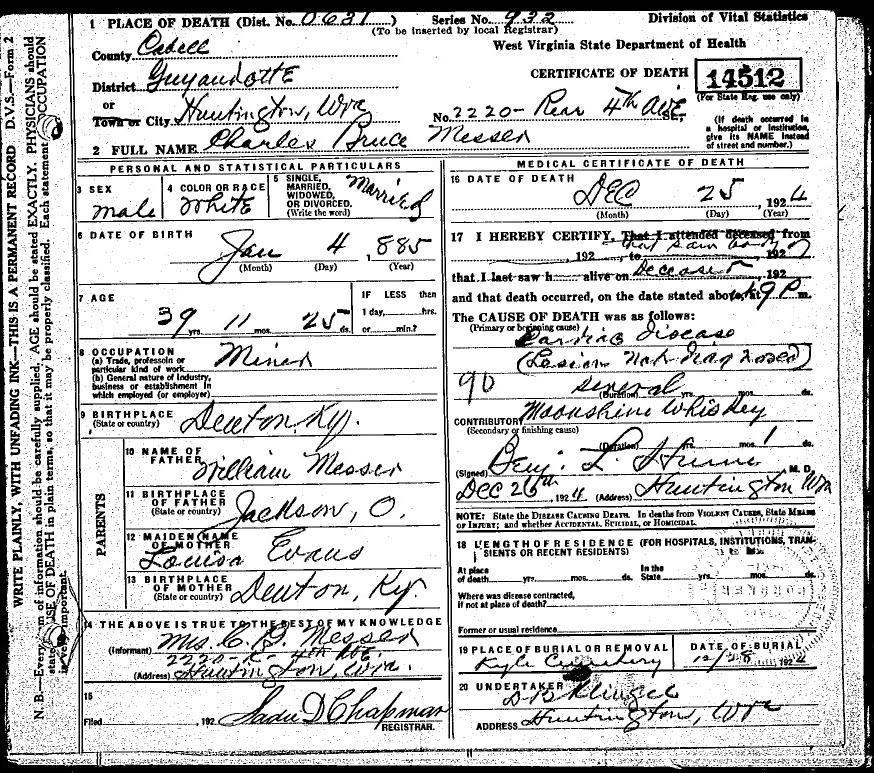 1 PLACE OF DEATH (Dist. No. 0631 ) Series No. 932 Division of Vital Statistics
(To be inserted by local Registrar)
County Cabell
District Guyandotte
or
Town or City Huntington, Wva
West Virginia State Department of Health
CERTIFICATE OF DEATH 14512
(For State Reg. use only)
No. 2220- Rear 4th Ave. St.
(If death occurred in a hospital or institution, give its NAME instead of street and number.)
2 FULL NAME Charles Bruce Messer
PERSONAL AND STATISTICAL PARTICULARS
3 SEX
male
4 COLOR OR RACE
White
5 SINGLE,
MARRIED,
WIDOWED,
OR DIVORCED.
(Write the word)
Married
6 DATE OF BIRTH
Jan 4 1885
(Month) (Day) (Year)
7 AGE
39 yrs. 11 mos. 25 ds.
IF LESS than
1 day, hrs.
or min.?
8 OCCUPATION
(a) Trade, professoin or
particular kind of work
Miner
(b) General nature of industry,
business or establishment in
which employed (or employer)
9 BIRTHPLACE
(State or country)
Denton, Ky.
PARENTS
10 NAME OF
FATHER
William Messer
11 BIRTHPLACE
OF FATHER
(State or country)
Jackson, O.
12 MAIDEN NAME
OF MOTHER
Louisa Evans
13 BIRTHPLACE
OF MOTHER
(State or country)
Denton, Ky.
14 THE ABOVE IS TRUE TO THE BEST OF MY KNOWLEDGE
(Informant) Mrs. C. B. Messer
2220-R- 4th Ave.
(Address) Huntington, Wva.
15
Filed , 192 Sadie D Chapman
REGISTRAR.
MEDICAL CERTIFICATE OF DEATH
16 DATE OF DEATH
DEC 25 , 1924
(Month) (Day) (Year)
17 I HEREBY CERTIFY, That I attended deceased from
that saw body of
, 192 , to 192
that I last saw h alive on Deceased , 192
and that death occurred, on the date stated above, at 9 P m.
The CAUSE OF DEATH was as follows:
(Primary or beginning cause)
Cardiac disease
(Lesion Not diagnosed)
90 several
(Duration) yrs. mos. ds.
CONTRIBUTORY Moonshine Whiskey
(Secondary or finishing cause)
(Duration) yrs. mos. 1 ds.
(Signed) Benj. L. Hume M. D.
Dec 26th, 1924 (Address) Huntington Wva
NOTE: State the DISEASE CAUSING DEATH. In deaths from VIOLENT CAUSES, State MEANS
OF INJURY; and whether ACCIDENTAL, SUICIDAL, or HOMICIDAL.
18 LENGTH OF RESIDENCE (FOR HOSPITALS, INSTITUTIONS, TRAN-
SIENTS OR RECENT RESIDENTS)
At place
of death yrs. mos. ds.
In the
State yrs. mos. ds.
Where was disease contracted,
if not at place of death?
Former or usual residence
19 PLACE OF BURIAL OR REMOVAL
Kyle Cemetery
DATE OF BURIAL
12/28 1924
20 UNDERTAKER
D B Klingel
ADDRESS Huntington, Wva
D.V.S.—Form 2
WRITE PLAINLY, WITH UNFADING INK—THIS IS A PERMANENT RECORD
N. B.—Every item of information should be carefully supplied, AGE should be stated EXACTLY. PHYSICIANS should
state CAUSE OF DEATH in plain terms, so that it may be properly classified. Each statement OCCUPATION
is very important.